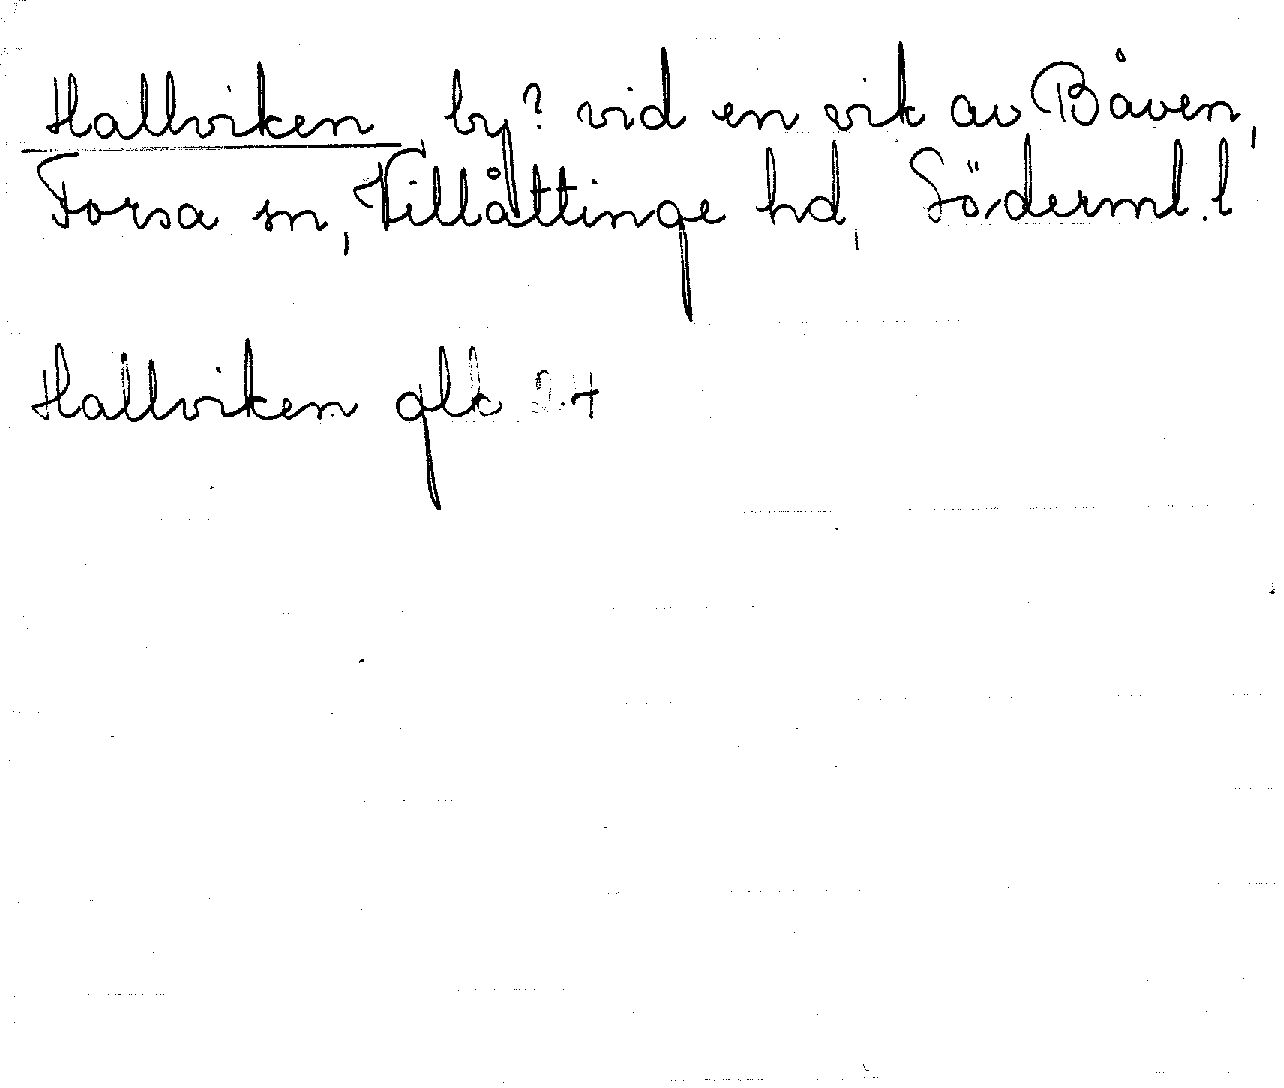 Hallviken, by? vid en vik av Båven,
Forsa sn, Villåttinge hd, Söderml. l
Hallviken glk